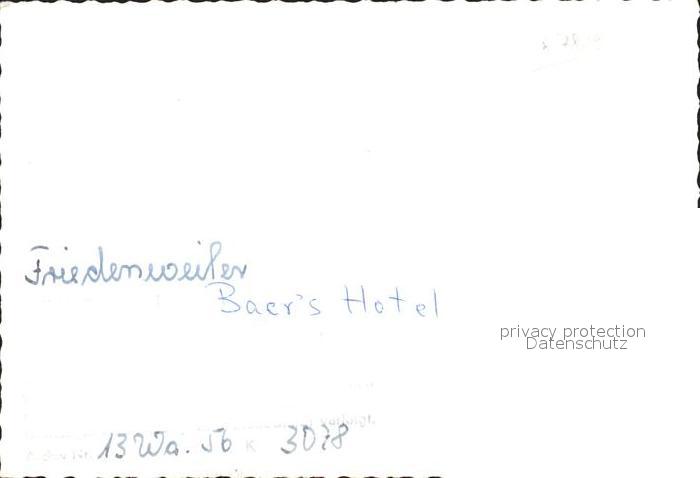 Friedenweiler
Baer's Hotel
privacy protection
Datenschutz
13 Wa. 56 K 3078